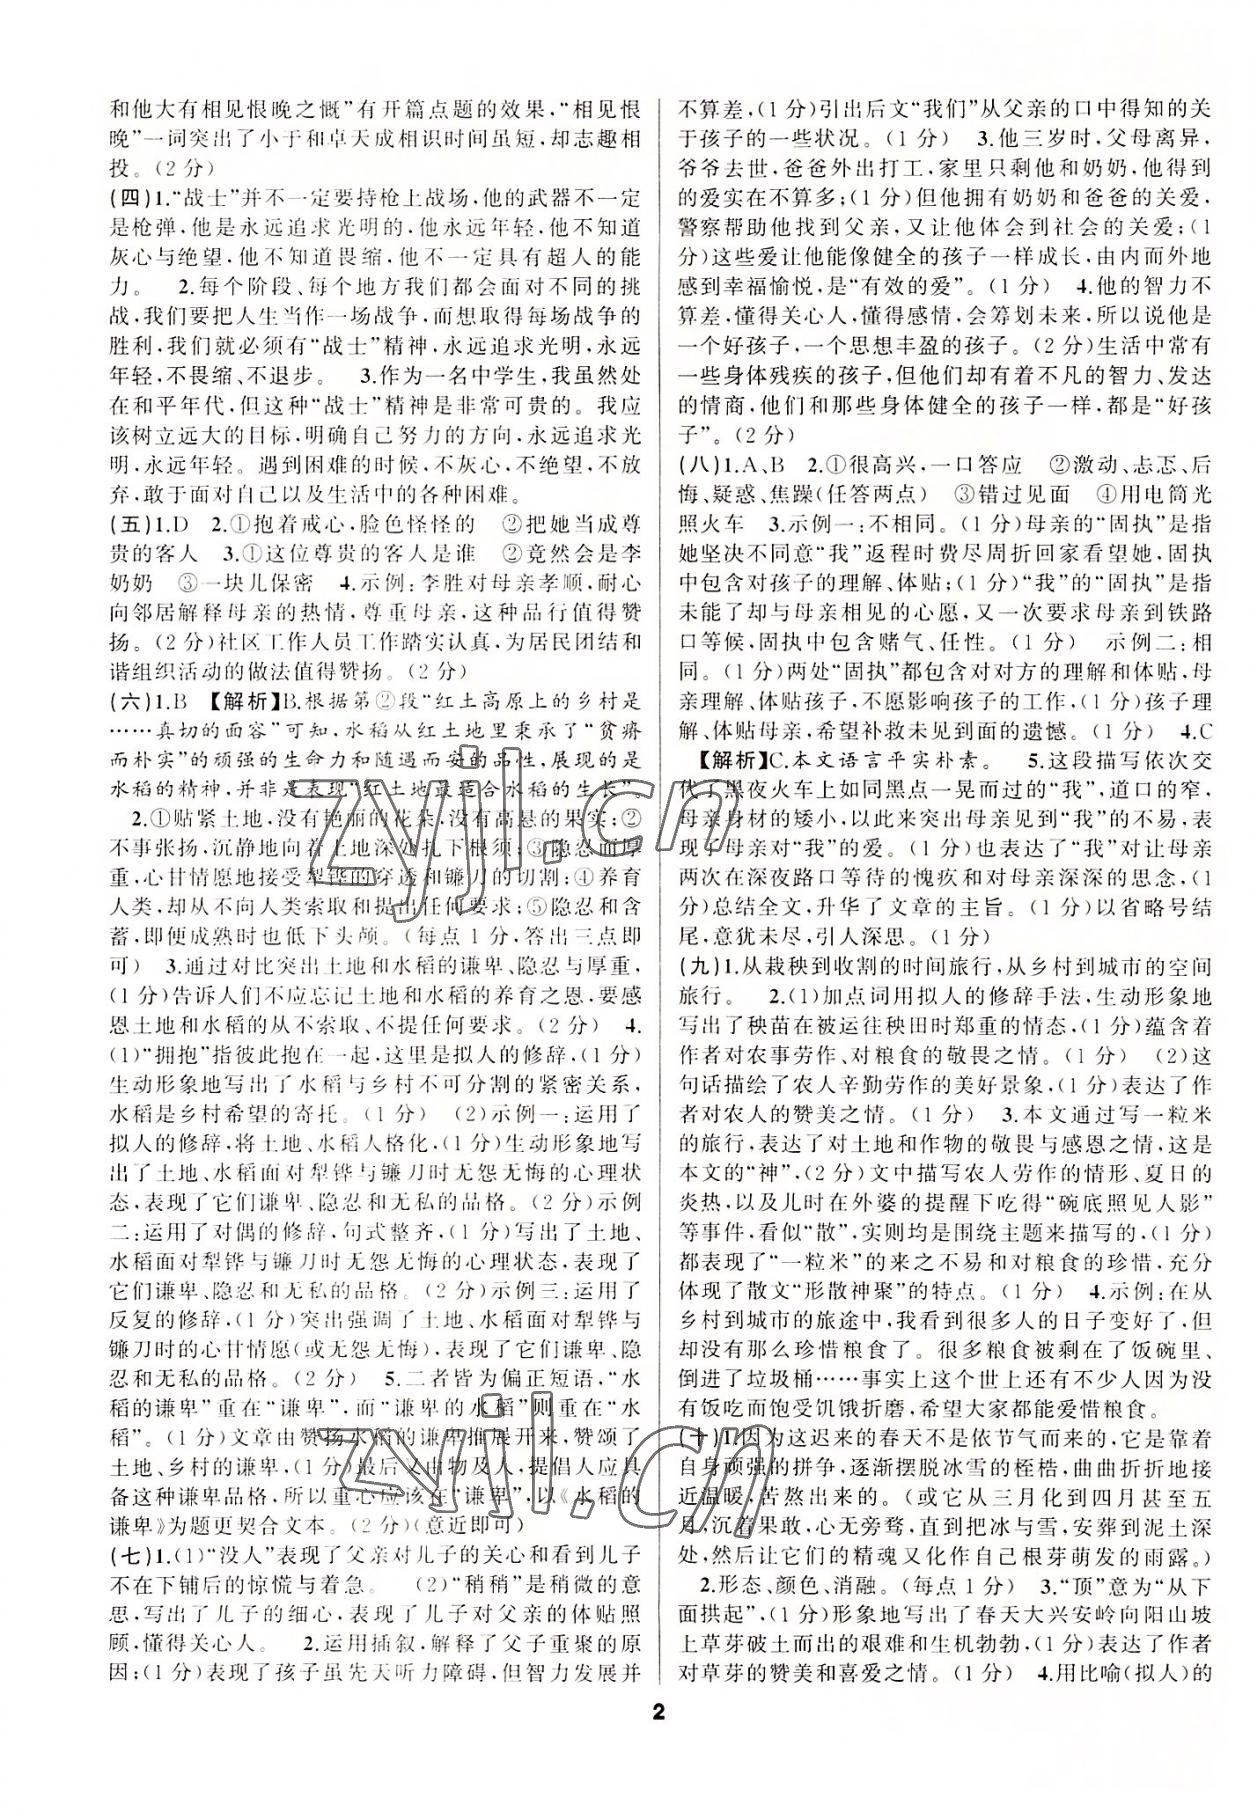 和他大有相见恨晚之慨”有开篇点题的效果,“相见恨
晚”一词突出了小于和卓天成相识时间虽短,却志趣相
投。(2分)
(四)1.“战士”并不一定要持枪上战场,他的武器不一定
是枪弹,他是永远追求光明的,他永远年轻,他不知道
灰心与绝望,他不知道畏缩,他不一定具有超人的能
力。 2.每个阶段、每个地方我们都会面对不同的挑
战,我们要把人生当作一场战争,而想取得每场战争的
胜利,我们就必须有“战士”精神,永远追求光明,永远
年轻,不畏缩、不退步。 3.作为一名中学生,我虽然处
在和平年代,但这种“战士”精神是非常可贵的。我应
该树立远大的目标,明确自己努力的方向,永远追求光
明,永远年轻。遇到困难的时候,不灰心,不绝望,不放
弃,敢于面对自己以及生活中的各种困难。
(五)1.D 2.①抱着戒心,脸色怪怪的 ②把她当成尊
贵的客人 3.①这位尊贵的客人是谁 ②竟然会是李
奶奶 ③一块儿保密 4.示例:李胜对母亲孝顺,耐心
向邻居解释母亲的热情,尊重母亲,这种品行值得赞
扬。(2分)社区工作人员工作踏实认真,为居民团结和
谐组织活动的做法值得赞扬。(2分)
(六)1.B 【解析】B.根据第②段“红土高原上的乡村是
……真切的面容”可知,水稻从红土地里秉承了“贫瘠
而朴实”的顽强的生命力和随遇而安的品性,展现的是
水稻的精神,并非是表现“红土地最适合水稻的生长”。
2.①贴紧土地,没有艳丽的花朵,没有高悬的果实;②
不事张扬,沉静地向着土地深处扎下根须;③隐忍而厚
重,心甘情愿地接受犁铧的穿透和镰刀的切割;④养育
人类,却从不向人类索取和提出任何要求;⑤隐忍和含
蓄,即便成熟时也低下头颅。(每点1分,答出三点即
可) 3.通过对比突出土地和水稻的谦卑、隐忍与厚重,
(1分)告诉人们不应忘记土地和水稻的养育之恩,要感
恩土地和水稻的从不索取、不提任何要求。(2分) 4.
(1)“拥抱”指彼此抱在一起,这里是拟人的修辞,(1分)
生动形象地写出了水稻与乡村不可分割的紧密关系,
水稻是乡村希望的寄托。(1分) (2)示例一:运用了
拟人的修辞,将土地、水稻人格化,(1分)生动形象地写
出了土地、水稻面对犁铧与镰刀时无怨无悔的心理状
态,表现了它们谦卑、隐忍和无私的品格。(2分)示例
二:运用了对偶的修辞,句式整齐,(1分)写出了土地、
水稻面对犁铧与镰刀时无怨无悔的心理状态,表现了
它们谦卑、隐忍和无私的品格。(2分)示例三:运用了
反复的修辞,(1分)突出强调了土地、水稻面对犁铧与
镰刀时的心甘情愿(或无怨无悔),表现了它们谦卑、隐
忍和无私的品格。(2分) 5.二者皆为偏正短语,“水
稻的谦卑”重在“谦卑”,而“谦卑的水稻”则重在“水
稻”。(1分)文章由赞扬水稻的谦卑推展开来,赞颂了
土地、乡村的谦卑,(1分)最后又由物及人,提倡人应具
备这种谦卑品格,所以重心应该在“谦卑”,以《水稻的
谦卑》为题更契合文本。(2分)(意近即可)
(七)1.(1)“没人”表现了父亲对儿子的关心和看到儿子
不在下铺后的惊慌与着急。 (2)“稍稍”是稍微的意
思,写出了儿子的细心,表现了儿子对父亲的体贴照
顾,懂得关心人。 2.运用插叙,解释了父子重聚的原
因;(1分)表现了孩子虽先天听力障碍,但智力发展并
不算差,(1分)引出后文“我们”从父亲的口中得知的关
于孩子的一些状况。(1分) 3.他三岁时,父母离异,
爷爷去世,爸爸外出打工,家里只剩他和奶奶,他得到
的爱实在不算多;(1分)但他拥有奶奶和爸爸的关爱,
警察帮助他找到父亲,又让他体会到社会的关爱;(1
分)这些爱让他能像健全的孩子一样成长,由内而外地
感到幸福愉悦,是“有效的爱”。(1分) 4.他的智力不
不算差,懂得关心人,懂得感情,会筹划未来,所以说他是
一个好孩子,一个思想丰盈的孩子。(2分)生活中常有
一些身体残疾的孩子,但他们却有着不凡的智力、发达
的情商,他们和那些身体健全的孩子一样,都是“好孩
子”。(2分)
(八)1.A、B 2.①很高兴,一口答应 ②激动、忐忑、后
悔、疑惑、焦躁(任答两点) ③错过见面 ④用电筒光
照火车 3.示例一:不相同。(1分)母亲的“固执”是指
她坚决不同意“我”返程时费尽周折回家看望她,固执
中包含对孩子的理解、体贴;(1分)“我”的“固执”是指
未能了却与母亲相见的心愿,又一次要求母亲到铁路
口等候,固执中包含赌气、任性。(1分) 示例二:相
同。(1分)两处“固执”都包含对对方的理解和体贴,母
亲理解、体贴孩子,不愿影响孩子的工作,(1分)孩子理
解、体贴母亲,希望补救未见到面的遗憾。(1分) 4.C
【解析】C.本文语言平实朴素。 5.这段描写依次交
代了黑夜火车上如同黑点一晃而过的“我”,道口的窄,
母亲身材的矮小,以此来突出母亲见到“我”的不易,表
现了母亲对“我”的爱。(1分)也表达了“我”对让母亲
两次在深夜路口等待的愧疚和对母亲深深的思念,(1
分)总结全文,升华了文章的主旨。(1分)以省略号结
尾,意犹未尽,引人深思。(1分)
(九)1.从栽秧到收割的时间旅行,从乡村到城市的空间
旅行。 2.(1)加点词用拟人的修辞手法,生动形象地
写出了秧苗在被运往秧田时郑重的情态,(1分)蕴含着
作者对农事劳作、对粮食的敬畏之情。(1分) (2)这
句话描绘了农人辛勤劳作的美好景象,(1分)表达了作
者对农人的赞美之情。(1分) 3.本文通过写一粒米
的旅行,表达了对土地和作物的敬畏与感恩之情,这是
本文的“神”,(2分)文中描写农人劳作的情形、夏日的
炎热,以及儿时在外婆的提醒下吃得“碗底照见人影”
等事件,看似“散”,实则均是围绕主题来描写的,(1分)
都表现了“一粒米”的来之不易和对粮食的珍惜,充分
体现了散文“形散神聚”的特点。(1分) 4.示例:在从
乡村到城市的旅途中,我看到很多人的日子变好了,但
却没有那么珍惜粮食了。很多粮食被剩在了饭碗里、
倒进了垃圾桶……事实上这个世上还有不少人因为没
有饭吃而饱受饥饿折磨,希望大家都能爱惜粮食。
(十)1.因为这迟来的春天不是依节气而来的,它是靠着
自身顽强的拼争,逐渐摆脱冰雪的桎梏,曲曲折折地接
近温暖,苦熬出来的。(或它从三月化到四月甚至五
月,沉着果敢,心无旁骛,直到把冰与雪,安葬到泥土深
处,然后让它们的精魂又化作自己根芽萌发的雨露。)
2.形态、颜色、消融。(每点1分) 3.“顶”意为“从下
面拱起”,(1分)形象地写出了春天大兴安岭向阳山坡
上草芽破土而出的艰难和生机勃勃,(1分)表达了作者
对草芽的赞美和喜爱之情。(1分) 4.用比喻(拟人)的
2
zyjl.cn
zyjl.cn